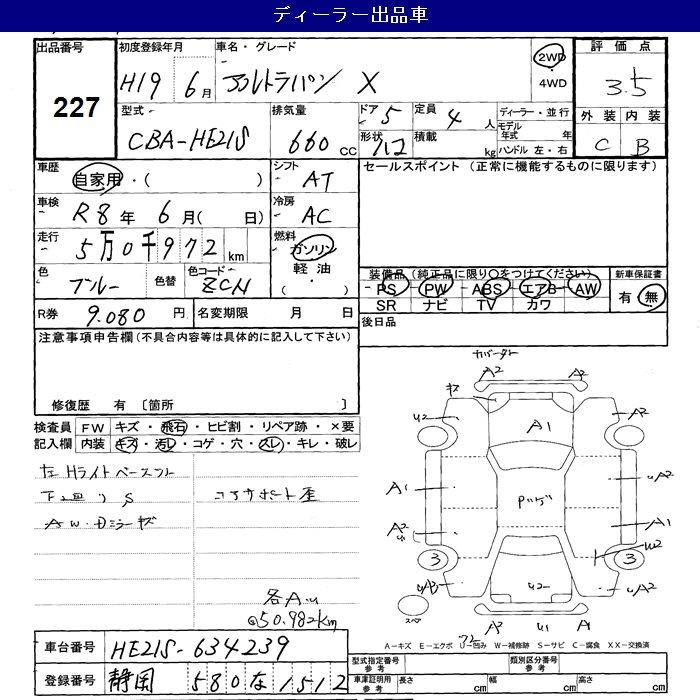 ディーラー出品車
出品番号
227
初度登録年月
H19 6月
車名・グレード
アルトラパン X
2WD
4WD
評価点
3.5
外装 内装
C B
型式
CBA-HE21S
排気量
660 CC
ドア 5
形状
定員 4人
積載 kg
ディーラー・並行
モデル年式 年
ハンドル 左・右
車歴
自家用・( )
シフト
AT
セールスポイント (正常に機能するものに限ります)
車検
R8年 6月( 日)
冷房
AC
走行
5万0千972km
燃料
ガソリン
軽油
( ・ )
色
ブルー
色替
色コード
ZCN
装備品(純正品に限り○をつけてください)
PS PW ABS エアB AW
SR ナビ TV カワ
新車保証書
有・無
R券 9.080円
名変期限 月 日
後日品
注意事項申告欄(不具合内容等は具体的に記入して下さい)
修復歴 有 〔箇所 〕
検査員 FW キズ・飛石・ヒビ割・リペア跡・×要
記入欄 内装 キズ・汚レ・コゲ・穴・スレ・キレ・破レ
左Hライトベースフト
下回りS
コアサポート歪
AW・Dミラーキズ
各AU
@50.982km
A2 A2
キズ
U2 A2
A1
A1 Pバゲ UA2
A2 A1
U1 W2
3 3
UA3 U2 UA2
スペア
A2 U1 A1
A-キズ E-エクボ U-凹み W-補修跡 S-サビ C-腐食 XX-交換済
車台番号 HE21S-634239
登録番号 静岡 580 な 1512
型式指定番号 参考
類別区分番号 参考
車庫証明用 参考 長さ cm 幅 cm 高さ cm